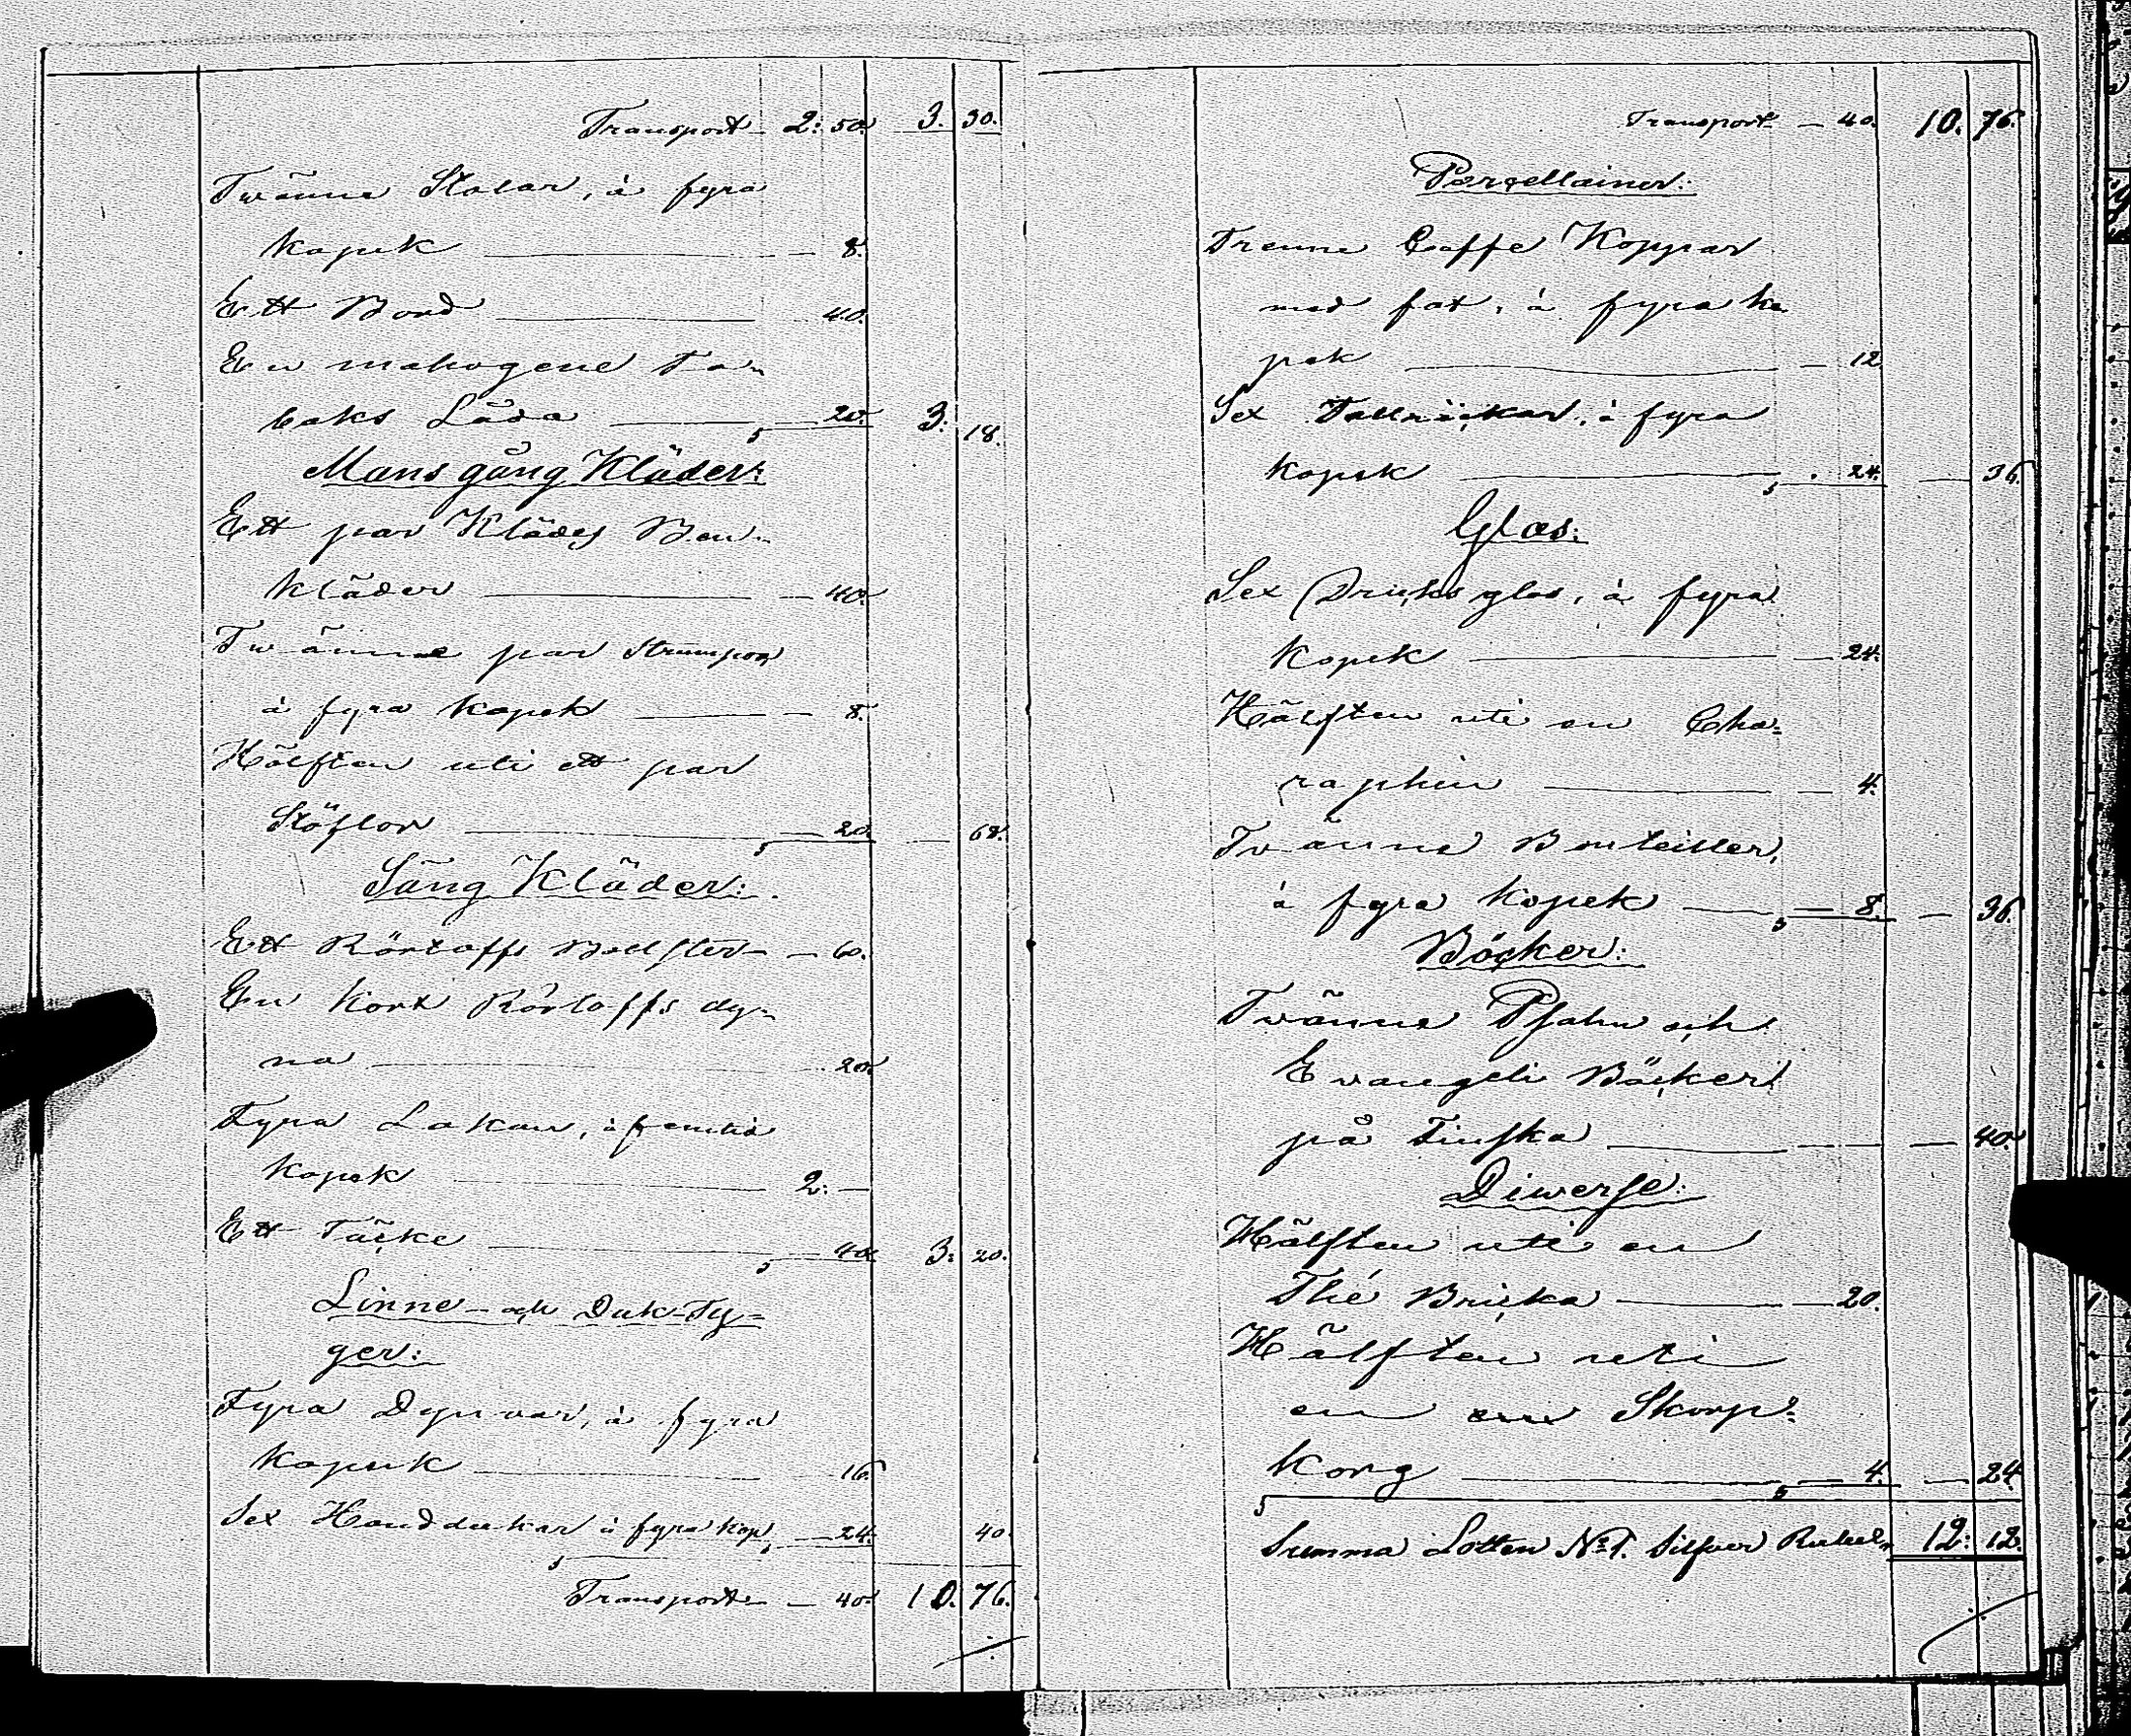 Transport 2: 50. 3. 30.
Twänne Stolar, à fyra
kopek — 8.
Ett Bord — 40.
En mahogene To-
baks Låda — 20. 3. 18.
Mans gång Kläder:
Ett par Klädes Ben-
kläder — 40.
Twänne par Strumpor
à fyra kopek — 8.
Hälften uti ett par
Stöflor — 20. — 68.
Säng Kläder:
Ett Bolster — 60.
En kort dy-
na — 20.
Fyra Lakan, à femtio
kopek — 2. —
Ett Täcke — 40. 3. 20.
Linne- och Duk-Ty-
ger:
Fyra Dynwar, à fyra
kopek — 16.
Sex Handdukar à fyra kop. — 24. 40.
Transport — 40. 10. 76.
Transport — 40. 10. 76.
Porcellainer:
Trenne Caffe Koppar
med fat, à fyra ko-
pek — 12.
Sex Tallrickar, à fyra
kopek — 24. — 36.
Glas:
Sex Dricks glas, à fyra
kopek — 24.
Hälften uti en Cha-
raphin — 4.
Twänne Bouteiller,
à fyra kopek — 8. — 36.
Böcker:
Twänne Psalm och
Evangeli Böcker
på Finska — — 40.
Diwerse:
Hälften uti en
Thé Bricka — 20.
Hälften uti
en en Skorp-
korg — 4. — 24.
Summa Lotten No 1. Silfver Rubel 12: 12.